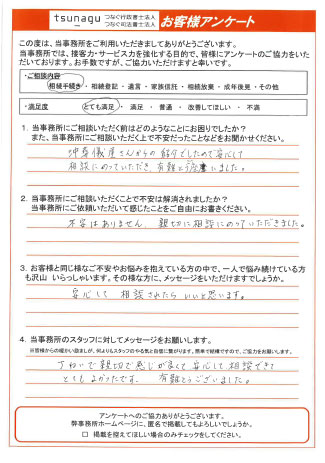 tsunagu つなぐ行政書士法人
つなぐ司法書士法人
お客様アンケート
この度は、当事務所をご利用いただきましてありがとうございます。
当事務所では、接客力・サービス力を強化する目的で、皆様にアンケートのご協力をいた
だいております。お手数ですが、ご協力いただけますと幸いです。
・ご相談内容
相続手続き・相続登記・遺言・家族信託・相続放棄・成年後見・その他
・満足度 とても満足・満足・普通・改善してほしい・不満
1. 当事務所にご相談いただく前はどのようなことにお困りでしたか?
また、当事務所にご相談いただく上で不安だったことなどをお聞かせください。
葬儀屋さんからの紹介でしたので安心して
相談にのっていただき、有難とう御座いました。
2. 当事務所にご相談いただくことで不安は解消されましたか?
当事務所にご依頼いただいて感じたことをご自由にお書きください。
不安はありません、親切に相談にのっていただきました。
3. お客様と同じ様なご不安やお悩みを抱えている方の中で、一人で悩み続けている方
も沢山いらっしゃいます。その様な方に、メッセージをいただけますでしょうか。
安心して 相談されたら いいと思います。
4. 当事務所のスタッフに対してメッセージをお願いします。
ていねいで親切で感じが良くて安心して相談できて
とてもよかったです。 有難とうございました。
アンケートへのご協力ありがとうございます。
弊事務所ホームページに、匿名で掲載してもよろしいでしょうか。
□ 掲載を控えてほしい場合のみチェックをしてください。